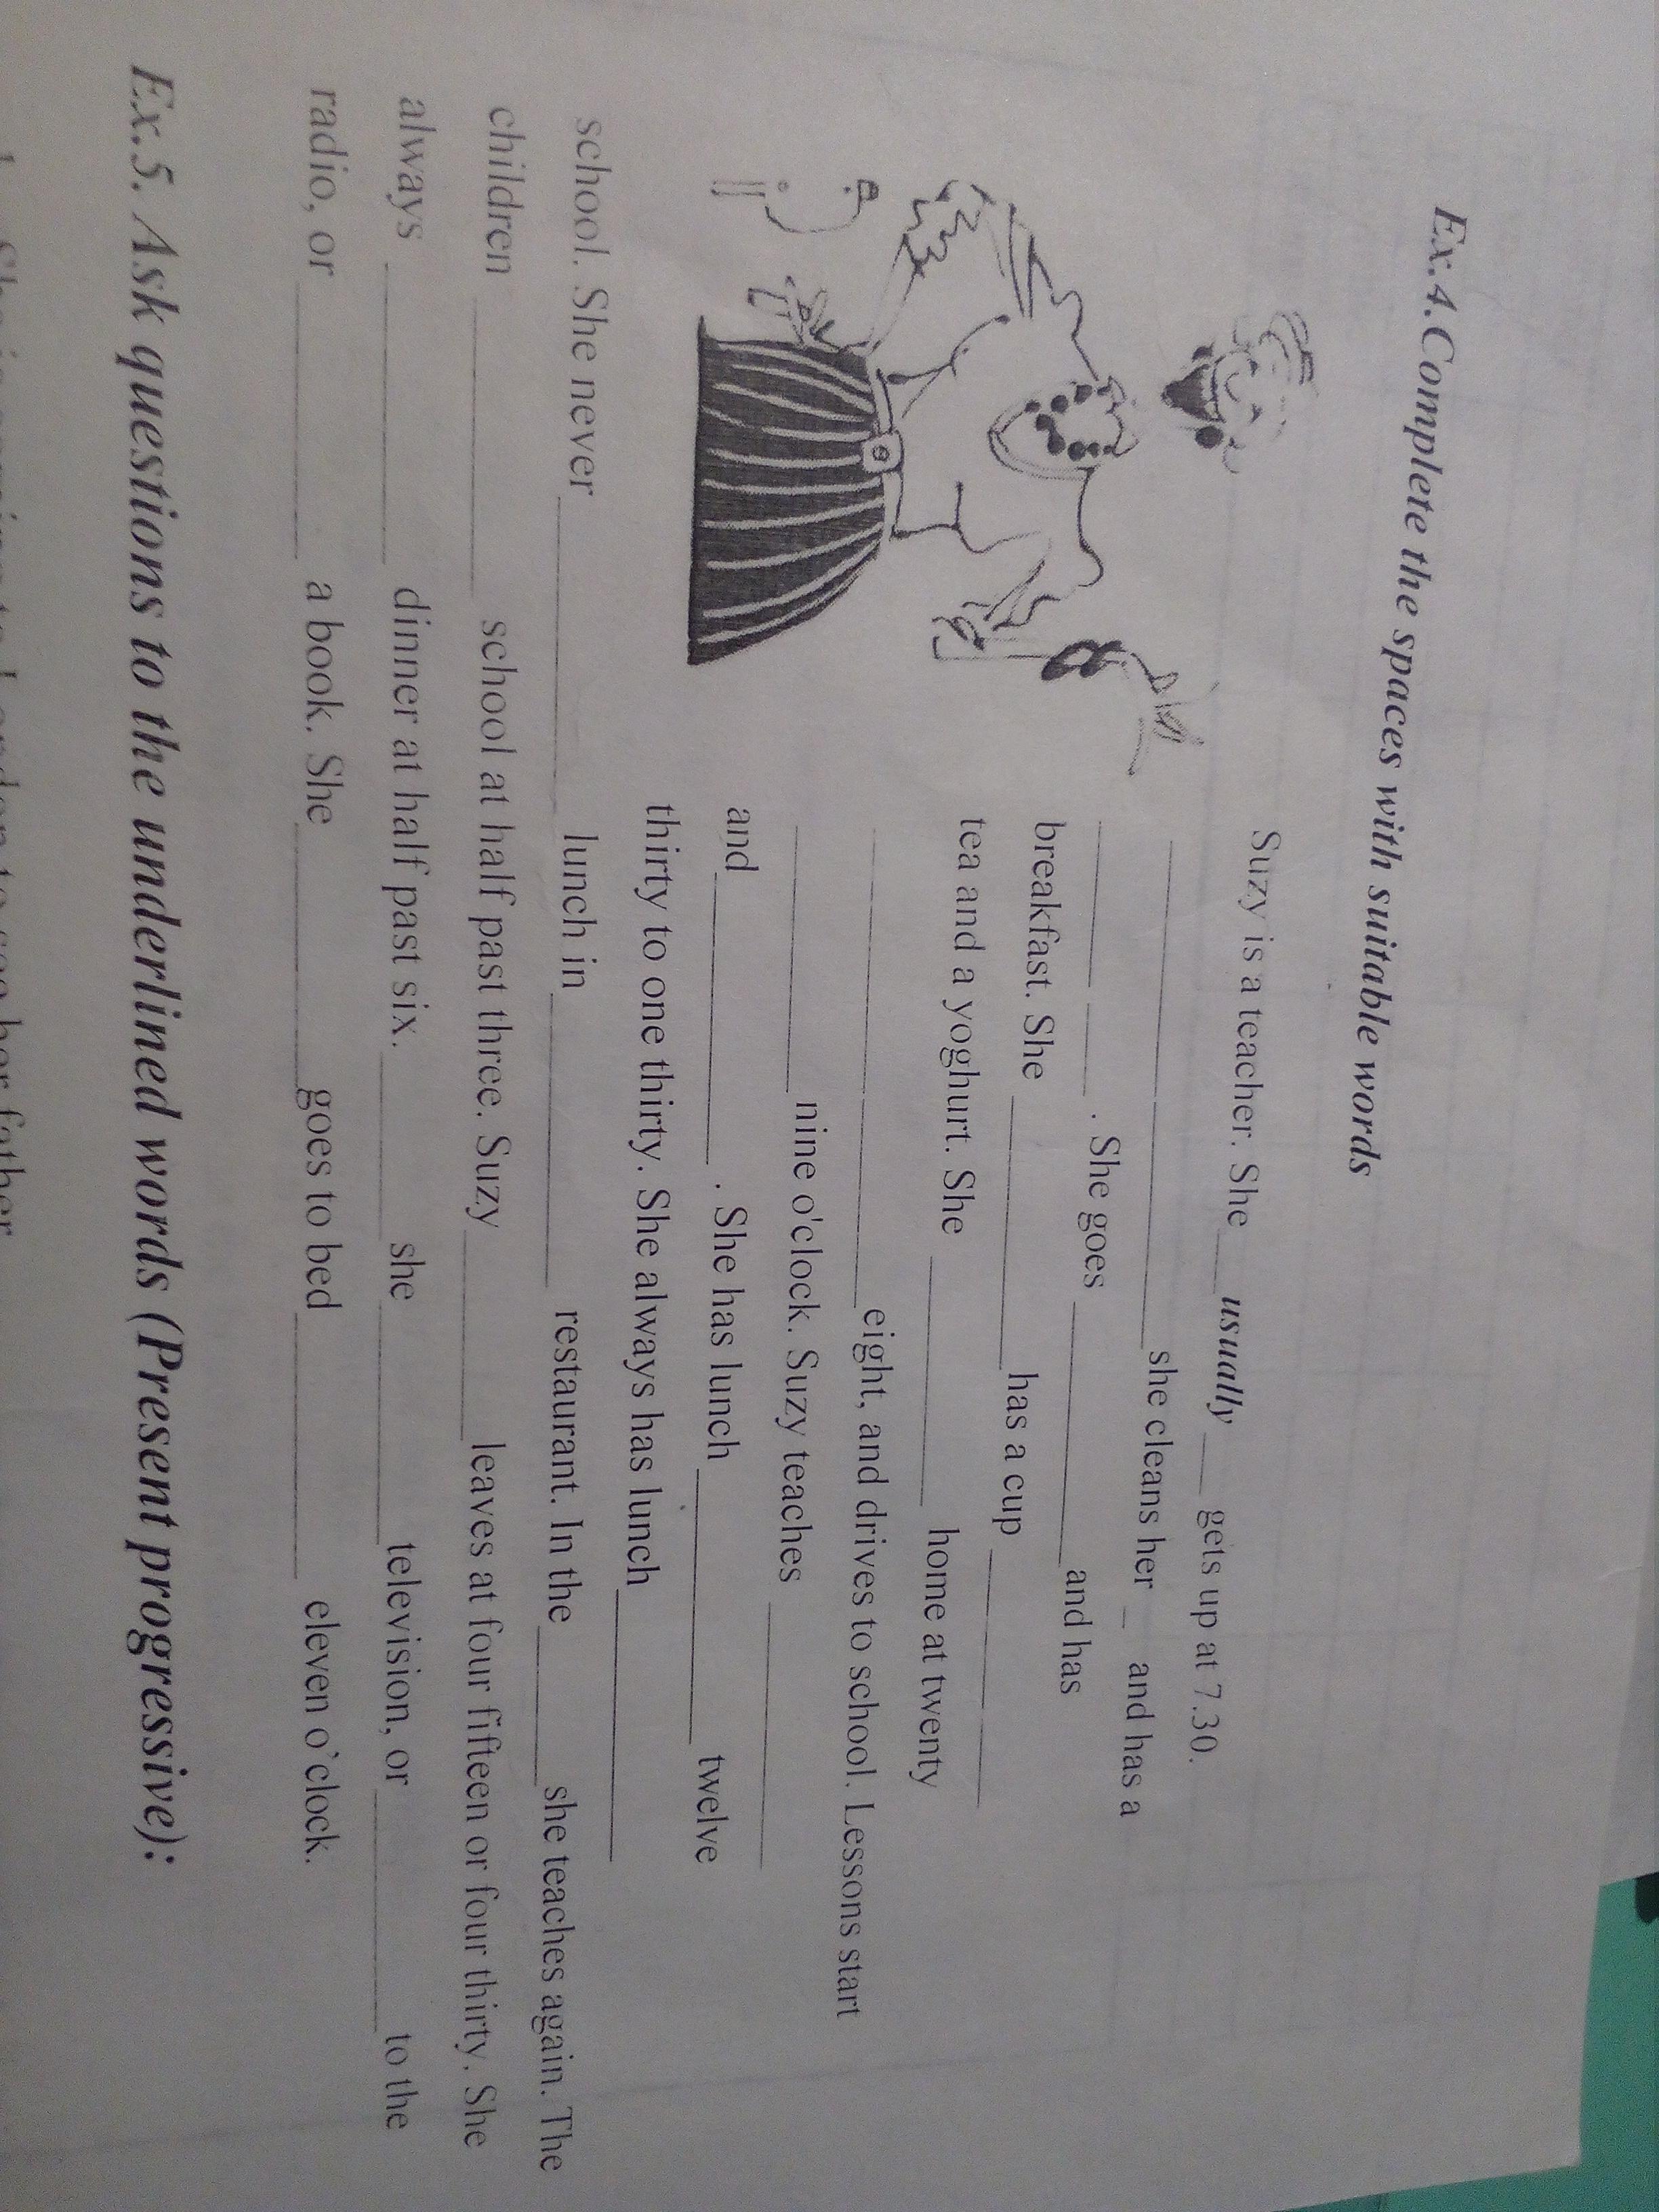 Ex.4.Complete the spaces with suitable words
Suzy is a teacher. She ___usually___ gets up at 7.30.
______ ______she cleans her _ and has a
______ ___. She goes ______and has
breakfast. She ______has a cup ______
tea and a yoghurt. She ______ home at twenty
____________eight, and drives to school. Lessons start
______nine o'clock. Suzy teaches ______
and ______. She has lunch ______ twelve
thirty to one thirty. She always has lunch ______
school. She never ______ lunch in ______ restaurant. In the ______she teaches again. The
children ______ school at half past three. Suzy ______leaves at four fifteen or four thirty. She
always ______ dinner at half past six. ______she ______television, or ______ to the
radio, or ______ a book. She ______goes to bed ______ eleven o'clock.
Ex.5. Ask questions to the underlined words (Present progressive):